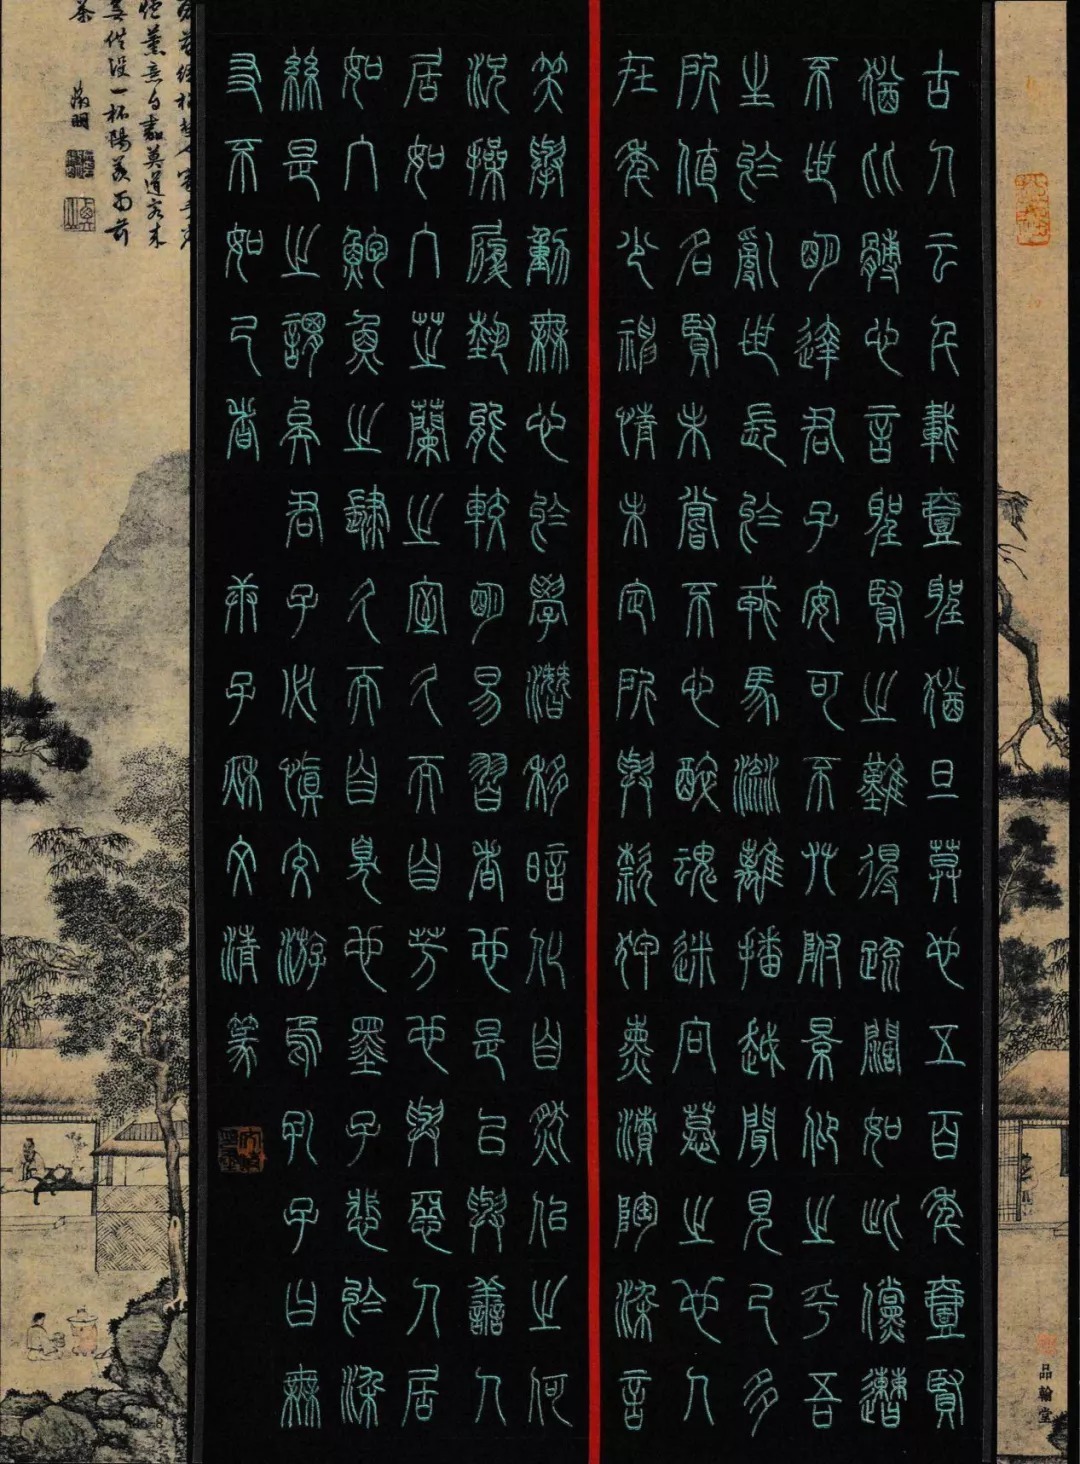 古人云千載壹聖猶旦莫也五百年壹賢
猶比髆也言聖賢之難得疏闊如此儻遭
不世明達君子安可不攀附景仰之乎吾
生於亂世長於戎馬流離播越聞見已多
所值名賢未嘗不心醉魂迷向慕之也人
在年少神情未定所與款狎熏漬陶染言
笑舉動無心於學潛移暗化自然似之何
況操履藝能較明易習者也是以與善人
居如入芝蘭之室久而自芳也與惡人居
如入鮑魚之肆久而自臭也墨子悲於染
絲是之謂矣君子必慎交游焉孔子曰無
友不如己者 庚子秋文清篆
莫道客來
無供設一杯陽羨雨前
茶
徵明
品翰堂